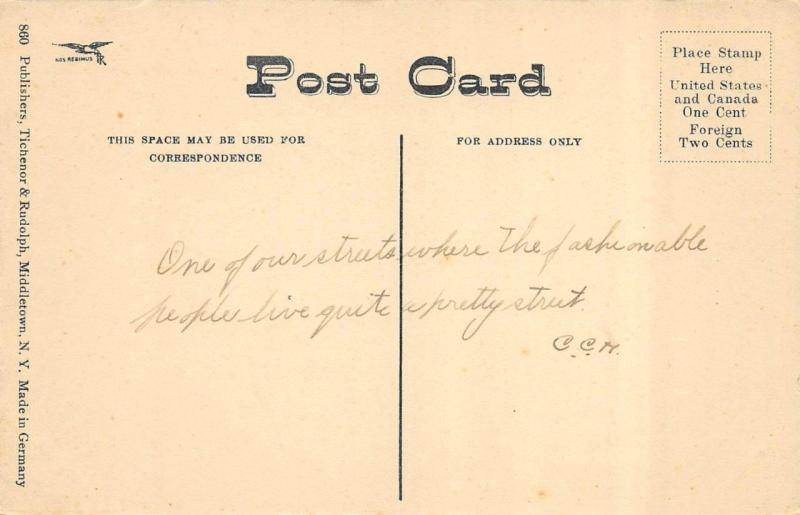 860 Publishers, Tichenor & Rudolph, Middletown, N. Y. Made in Germany
NOS REBIMUS
Post Card
Place Stamp
Here
United States
and Canada
One Cent
Foreign
Two Cents
THIS SPACE MAY BE USED FOR
CORRESPONDENCE
FOR ADDRESS ONLY
One of our streets where the fashionable
people live quite a pretty street.
C.C.H.